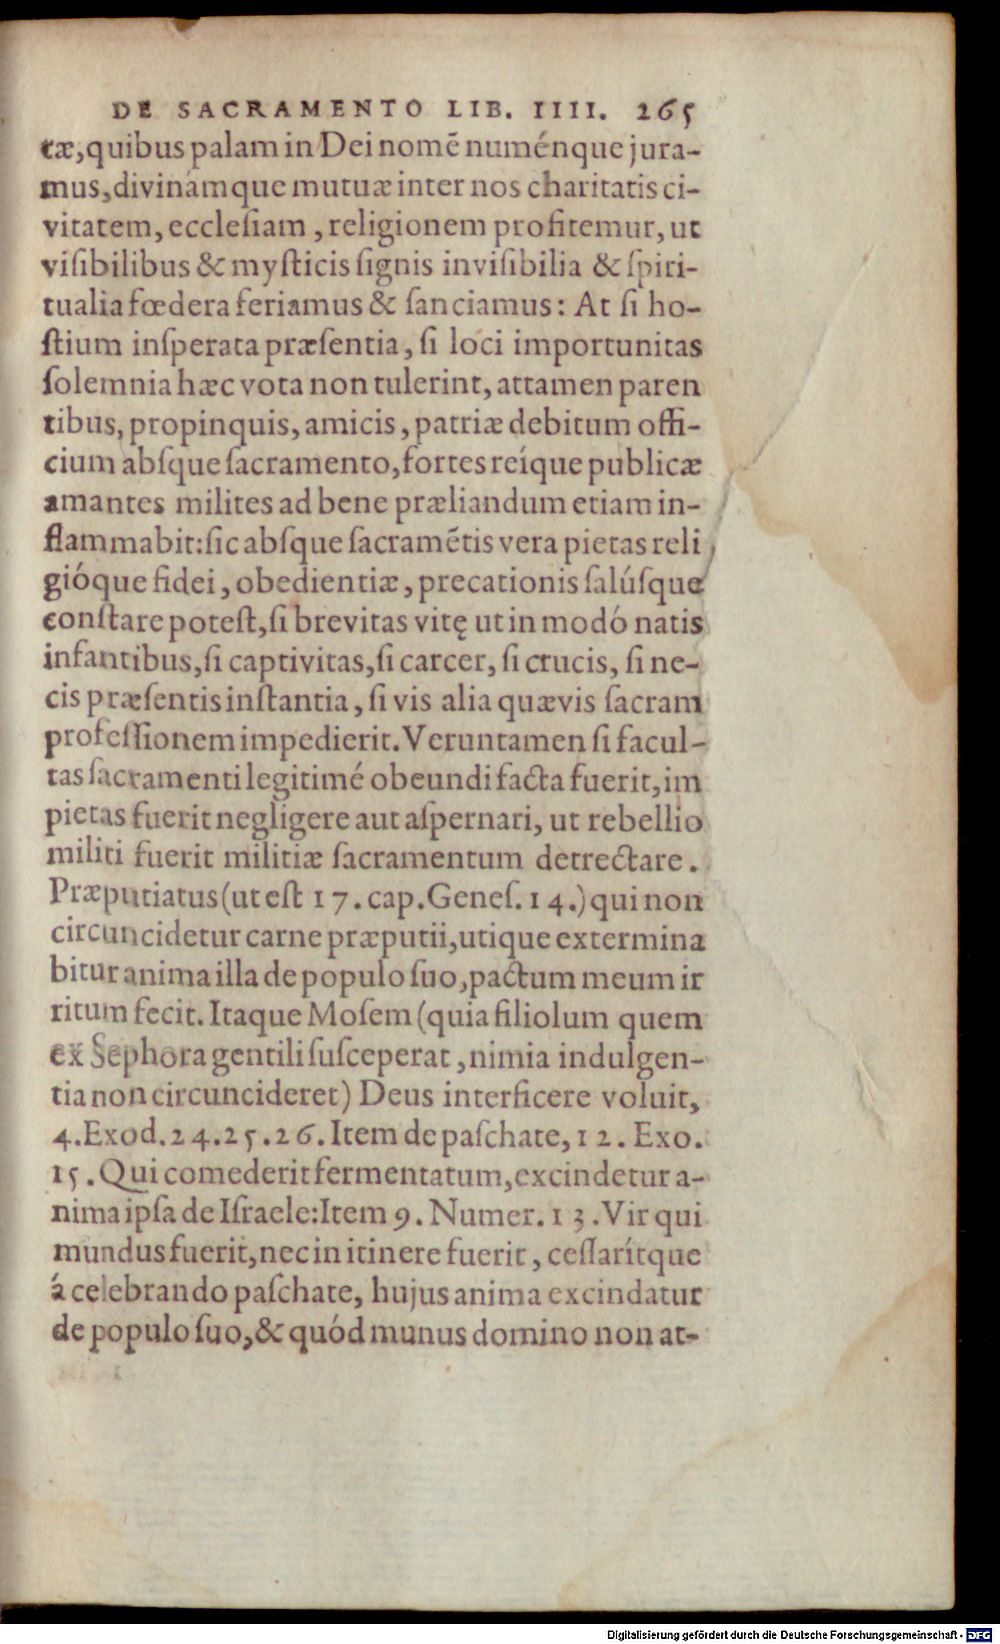 DE SACRAMENTO LIB. IIII. 265
tæ, quibus palam in Dei nomē numénque jura-
mus, divinámque mutuæ inter nos charitatis ci-
vitatem, eccleſiam, religionem profitemur, ut
viſibilibus & myſticis ſignis inviſibilia & ſpiri-
tualia fœdera feriamus & ſanciamus: At ſi ho-
ſtium inſperata præſentia, ſi loci importunitas
ſolemnia hæc vota non tulerint, attamen paren
tibus, propinquis, amicis, patriæ debitum offi-
cium abſque ſacramento, fortes reíque publicæ
amantes milites ad bene præliandum etiam in-
flammabit: ſic abſque ſacramētis vera pietas reli
gióque fidei, obedientiæ, precationis ſalúſque
conſtare poteſt, ſi brevitas vitę ut in modó natis
infantibus, ſi captivitas, ſi carcer, ſi crucis, ſi ne-
cis præſentis inſtantia, ſi vis alia quævis ſacram
profeſſionem impedierit. Veruntamen ſi facul-
tas ſacramenti legitimé obeundi facta fuerit, im
pietas fuerit negligere aut aſpernari, ut rebellio
militi fuerit militiæ ſacramentum detrectare.
Præputiatus (ut eſt 17. cap. Geneſ. 14.) qui non
circuncidetur carne præputii, utique extermina
bitur anima illa de populo ſuo, pactum meum ir
ritum fecit. Itaque Moſem (quia filiolum quem
ex Sephora gentili ſuſceperat, nimia indulgen-
tia non circuncideret) Deus interficere voluit,
4. Exod. 24. 25. 26. Item de paſchate, 12. Exo.
15. Qui comederit fermentatum, excindetur a-
nima ipſa de Iſraele: Item 9. Numer. 13. Vir qui
mundus fuerit, nec in itinere fuerit, ceſſarítque
á celebrando paſchate, hujus anima excindatur
de populo ſuo, & quód munus domino non at-
Digitalisierung gefördert durch die Deutsche Forschungsgemeinschaft - DFG